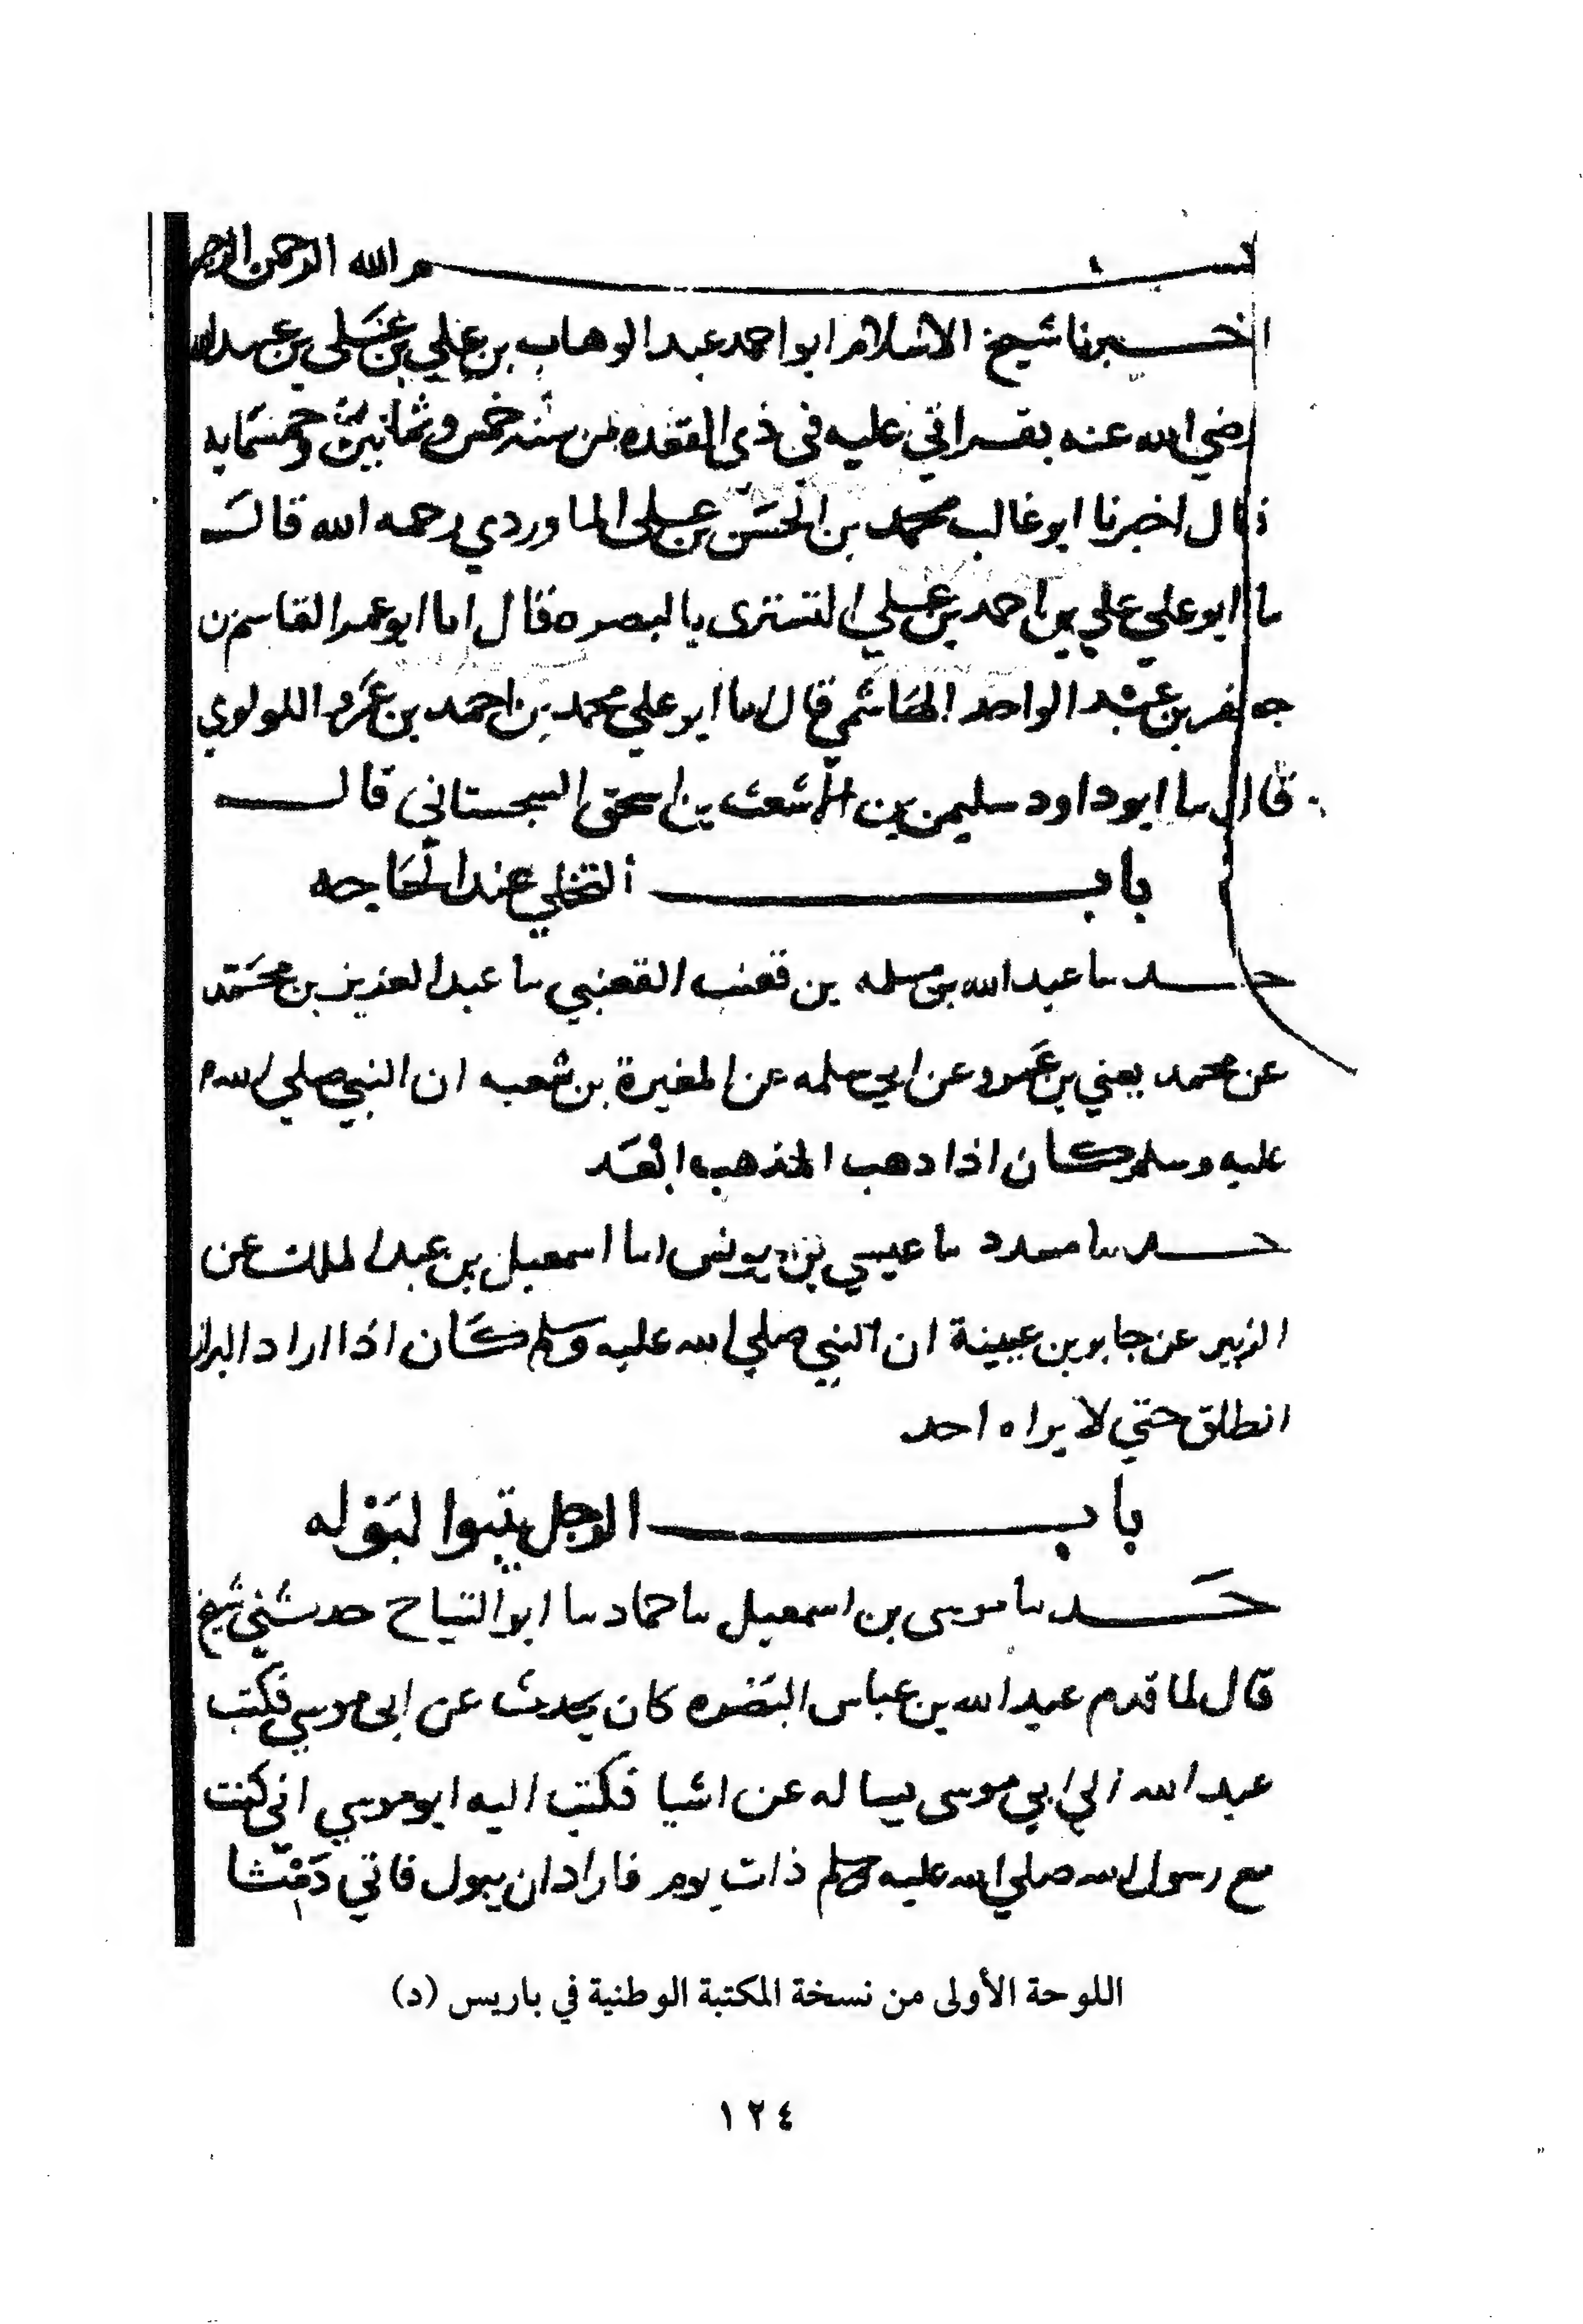 بسم الله الرحمن الرحيم
اخبرنا شيخ الاسلام ابو احمد عبد الوهاب بن علي بن علي بن عبيد الله
رضي الله عنه بقراتي عليه في ذي القعده من سنه خمس وثمانين وخمسمايه
قال اخبرنا ابو غالب محمد بن الحسن بن علي الماوردي رحمه الله قال
نا ابو علي علي بن احمد بن علي التستري بالبصره قال انا ابو عمر القاسم بن
جعفر بن عبد الواحد الهاشمي قال نا ابو علي محمد بن احمد بن عمرو اللولوي
قال نا ابو داود سليمن بن الاشعث بن اسحق السجستاني قال
باب التخلي عند الحاجه
حدثنا عبد الله بن مسلمه بن قعنب القعنبي نا عبد العزيز بن محمد
عن محمد يعني بن عمرو عن ابي سلمه عن المغيرة بن شعبه ان النبي صلي الله
عليه وسلم كان اذا دهب المذهب ابعد
حدثنا مسدد نا عيسي بن يونس انا اسمعيل بن عبد الملك عن
الزبير عن جابر بن عيينة ان النبي صلي الله عليه وسلم كان اذا اراد البراز
انطلق حتي لا يراه احد
باب الرجل يتبوا لبوله
حدثنا موسى بن اسمعيل نا حماد نا ابو التياح حدثني شيخ
قال لما قدم عبد الله بن عباس البصره كان يحدث عن ابي موسي فكتب
عبد الله الي ابي موسى يساله عن اشيا فكتب اليه ابو موسي اني كنت
مع رسول الله صلي الله عليه وسلم ذات يوم فاراد ان يبول فاتي دمثا
اللوحة الأولى من نسخة المكتبة الوطنية في باريس (د)
١٢٤